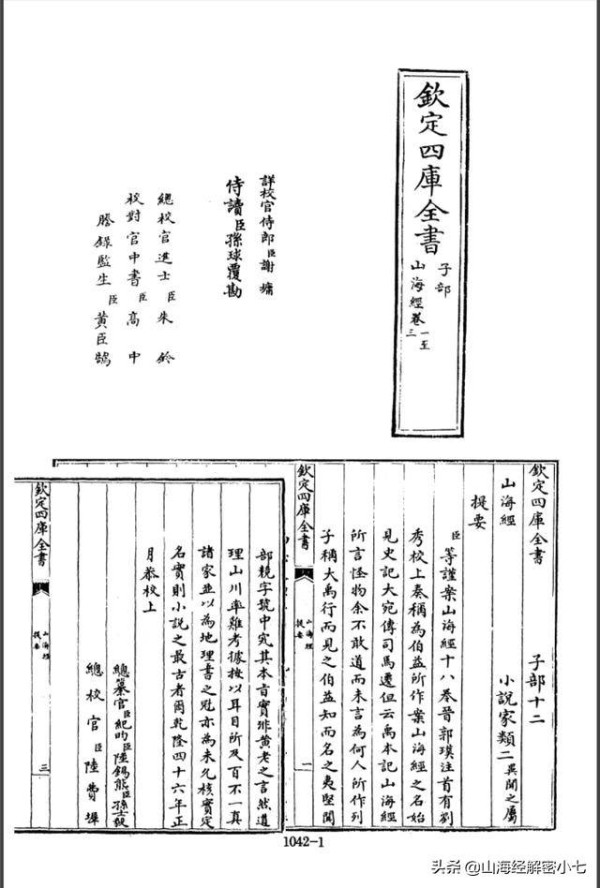 欽定四庫全書
子部
山海經卷一至三
詳校官侍郎臣謝墉
侍讀臣孫球覆勘
總校官進士臣朱鈐
校對官中書臣高中
謄錄監生臣黃臣鵠
欽定四庫全書 子部十二
山海經 小說家類二異聞之屬
提要
臣等謹案山海經十八卷晉郭璞注首有劉
秀校上奏稱為伯益所作案山海經之名始
見史記大宛傳司馬遷但云禹本記山海經
所言怪物余不敢道而未言為何人所作列
子稱大禹行而見之伯益知而名之夷堅聞
欽定四庫全書 山海經提要 一
部競字號中究其本旨實非黃老之言然道
理山川率難考據按以耳目所及百不一真
諸家並以為地理書之冠亦為未允核實定
名實則小說之最古者爾乾隆四十六年正
月恭校上
總纂官臣紀昀臣陸錫熊臣孫士毅
總校官臣陸費墀
欽定四庫全書 山海經提要 三
1042-1
头条 @山海经解密小七